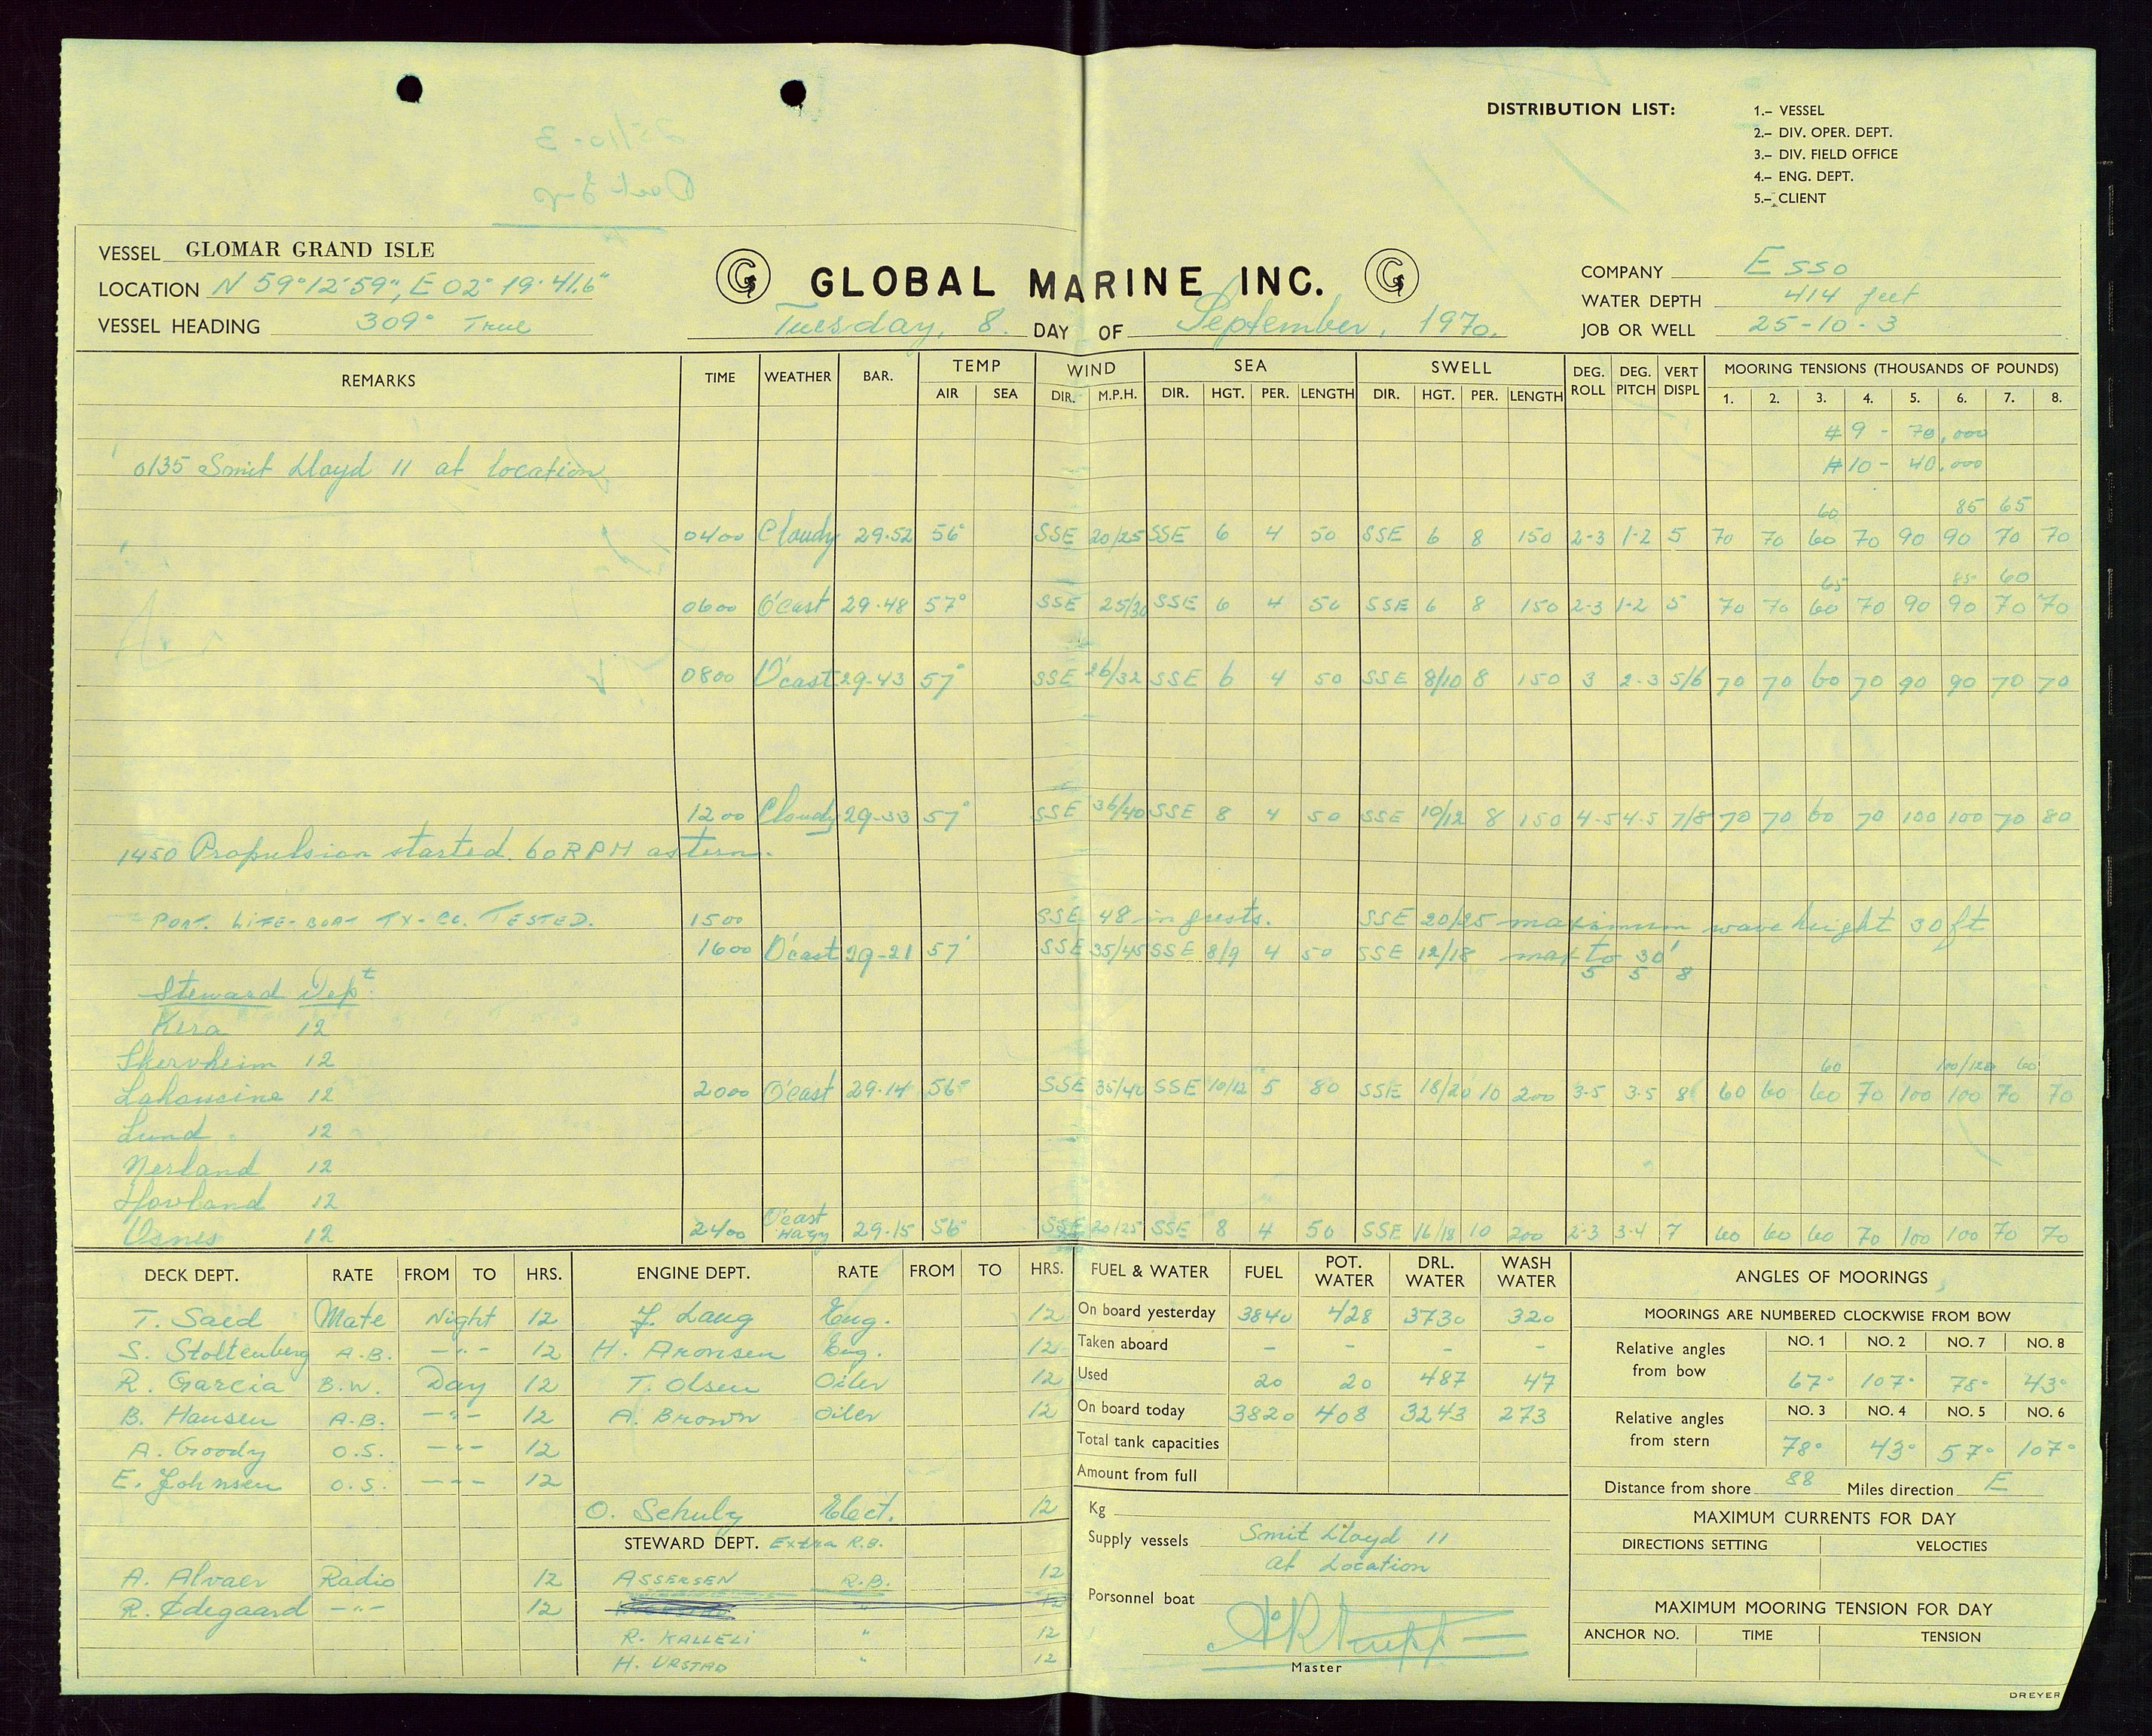 DISTRIBUTION LIST:
1.– VESSEL
2.– DIV. OPER. DEPT.
3.– DIV. FIELD OFFICE
4.– ENG. DEPT.
5.– CLIENT
VESSEL GLOMAR GRAND ISLE
LOCATION N 59° 12' 59", E 02° 19' 41.6"
VESSEL HEADING 309° True
GLOBAL MARINE INC.
Tuesday, 8. DAY OF September, 1970.
COMPANY Esso
WATER DEPTH 414 feet
JOB OR WELL 25-10-3
REMARKS TIME WEATHER BAR. TEMP WIND SEA SWELL DEG. ROLL DEG. PITCH VERT DISPL MOORING TENSIONS (THOUSANDS OF POUNDS)
AIR SEA DIR. M.P.H. DIR. HGT. PER. LENGTH DIR. HGT. PER. LENGTH 1. 2. 3. 4. 5. 6. 7. 8.
#9 - 70,000
0135 Smit Lloyd 11 at location #10 - 40,000
60 85 65
0400 Cloudy 29.52 56° SSE 20/25 SSE 6 4 50 SSE 6 8 150 2-3 1-2 5 70 70 60 70 90 90 70 70
65 85 60
0600 O'cast 29.48 57° SSE 25/30 SSE 6 4 50 SSE 6 8 150 2-3 1-2 5 70 70 60 70 90 90 70 70
0800 O'cast 29-43 57° SSE 26/32 SSE 6 4 50 SSE 8/10 8 150 3 2-3 5/6 70 70 60 70 90 90 70 70
1200 Cloudy 29-33 57° SSE 36/40 SSE 8 4 50 SSE 10/12 8 150 4-5 4-5 7/8 70 70 60 70 100 100 70 80
1450 Propulsion started. 60 RPM astern.
PORT. LIFE-BOAT TX-CC. TESTED. 1500 SSE 48 in gusts. SSE 20/25 maximum wave height 30 ft
1600 O'cast 29-21 57° SSE 35/45 SSE 8/9 4 50 SSE 12/18 max to 30'
5 5 8
Steward Dept.
Kera 12
Skervheim 12 60 100/120 60
Lahoucine 12 2000 O'cast 29.14 56° SSE 35/40 SSE 10/12 5 80 SSE 18/20 10 200 3-5 3-5 8 60 60 60 70 100 100 70 70
Lund 12
Nerland 12
Hovland 12
Osnes 12 2400 O'cast Hazy 29.15 56° SSE 20/25 SSE 8 4 50 SSE 16/18 10 200 2-3 3-4 7 60 60 60 70 100 100 70 70
DECK DEPT. RATE FROM TO HRS.
T. Saed Mate Night 12
S. Stoltenberg A.B. -"- 12
R. Garcia B.W. Day 12
B. Hansen A.B. -"- 12
A. Goody O.S. -"- 12
E. Johnsen O.S. -"- 12
A. Alvaer Radio 12
R. Ødegaard -"- 12
ENGINE DEPT. RATE FROM TO HRS.
J. Laug Eng. 12
H. Aronsen Eng. 12
T. Olsen Oiler 12
A. Brown Oiler 12
O. Schulz Elect. 12
STEWARD DEPT. Extra R.B.
ASSERSEN R.B. 12
R. KALLELI " 12
H. URSTAD " 12
FUEL & WATER FUEL POT. WATER DRL. WATER WASH WATER
On board yesterday 3840 428 3730 320
Taken aboard - - - -
Used 20 20 487 47
On board today 3820 408 3243 273
Total tank capacities
Amount from full
Kg
Supply vessels Smit Lloyd 11
at Location
Porsonnel boat
Master
ANGLES OF MOORINGS
MOORINGS ARE NUMBERED CLOCKWISE FROM BOW
Relative angles from bow NO. 1 NO. 2 NO. 7 NO. 8
67° 107° 78° 43°
Relative angles from stern NO. 3 NO. 4 NO. 5 NO. 6
78° 43° 57° 107°
Distance from shore 88 Miles direction E
MAXIMUM CURRENTS FOR DAY
DIRECTIONS SETTING VELOCTIES
MAXIMUM MOORING TENSION FOR DAY
ANCHOR NO. TIME TENSION
DREYER